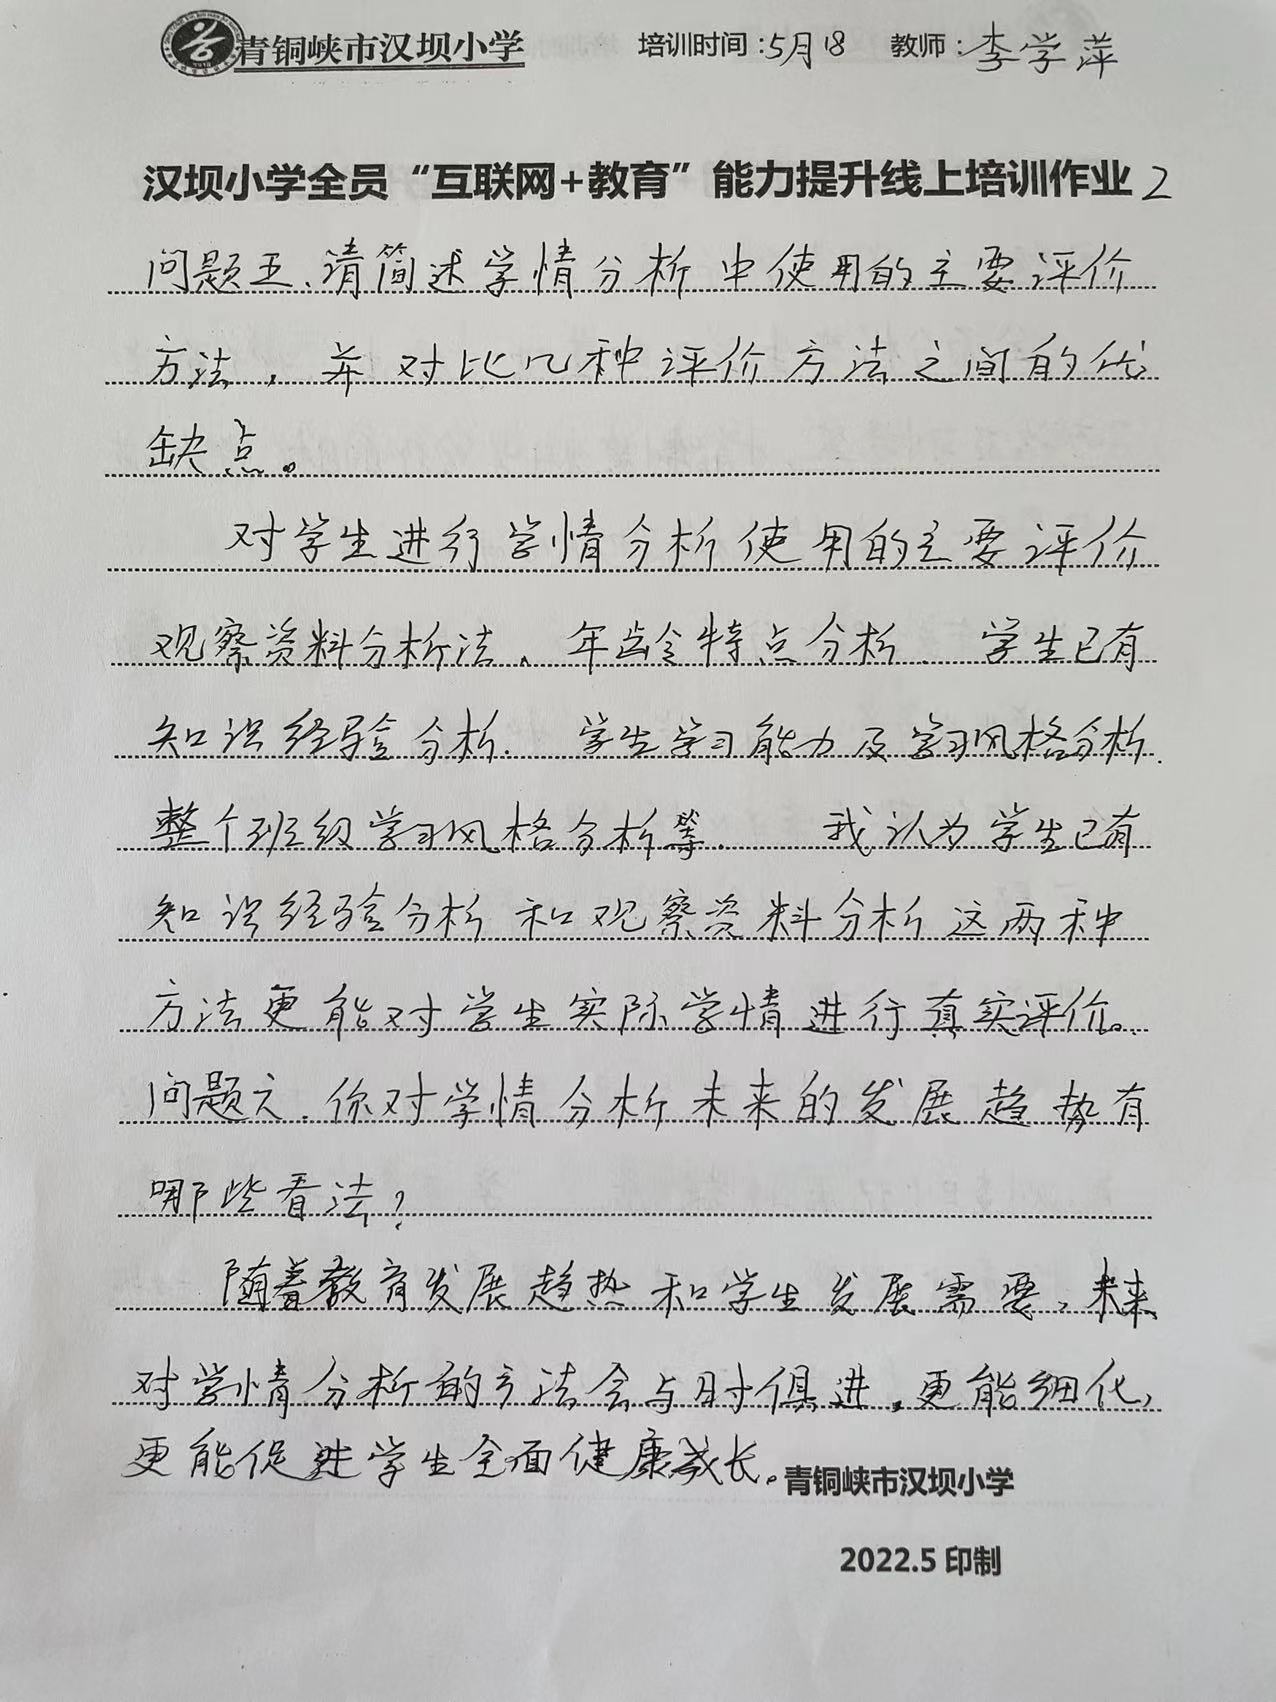 青铜峡市汉坝小学 培训时间:5月18 教师:李学萍
汉坝小学全员“互联网+教育”能力提升线上培训作业2
问题五、请简述学情分析中使用的主要评价
方法,并对比几种评价方法之间的优
缺点。
对学生进行学情分析使用的主要评价
观察资料分析法、年龄特点分析、学生已有
知识经验分析、学生学习能力及学习风格分析、
整个班级学习风格分析等。我认为学生已有
知识经验分析和观察资料分析这两种
方法更能对学生实际学情进行真实评价。
问题六、你对学情分析未来的发展趋势有
哪些看法?
随着教育发展趋热和学生发展需要,未来
对学情分析的方法会与时俱进,更能细化,
更能促进学生全面健康成长。
青铜峡市汉坝小学
2022.5 印制